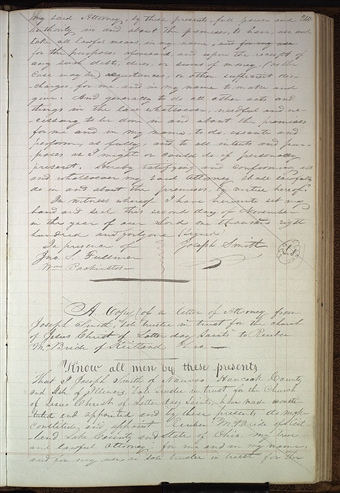 my said Attorney, by these presents, full power and
authority in and about the premises, to have, use and
take all lawful ways and means, in my name, and for my use
for the purposes aforesaid and upon the receipt of
any such debts, dues, or sums of money, (as the
case may be) acquittances, or other sufficient dis-
charges for me and in my name to make and
give. And generally to do all other acts and
things in the law whatsoever, needful and ne-
cessary to be done in and about the premises
for me and in my name, to do execute and
perform, as fully, and to all intents and pur-
poses as I might or could do if personally
present. Hereby ratifying and confirming all
and whatsoever my said Attorney shall
do in and about the premises by virtue hereof.
In witness whereof I have hereunto set my
hand and seal this second day of November
in the year of our Lord one thousand eight
hundred and forty one
In presence of Joseph Smith
Jno S. Fullmer
Wm
A Copy of a letter of Attorney from
Joseph Smith, Sole trustee in trust for the church
of Jesus Christ of Latter day Saints to Reuben
McBride of Kirtland
Know all men by these presents
That I Joseph Smith of Nauvoo, Hancock County
and State of Illinois, Sole trustee in trust for the Church
of Jesus Christ of Latter day Saints, have made consti-
tuted and appointed and by these presents do make
constitute, and appoint Reuben McBride of Kirt-
land Lake County and State of Ohio, my true
and lawful Attorney, for me and in my name
and for my use as Sole trustee in trust for the